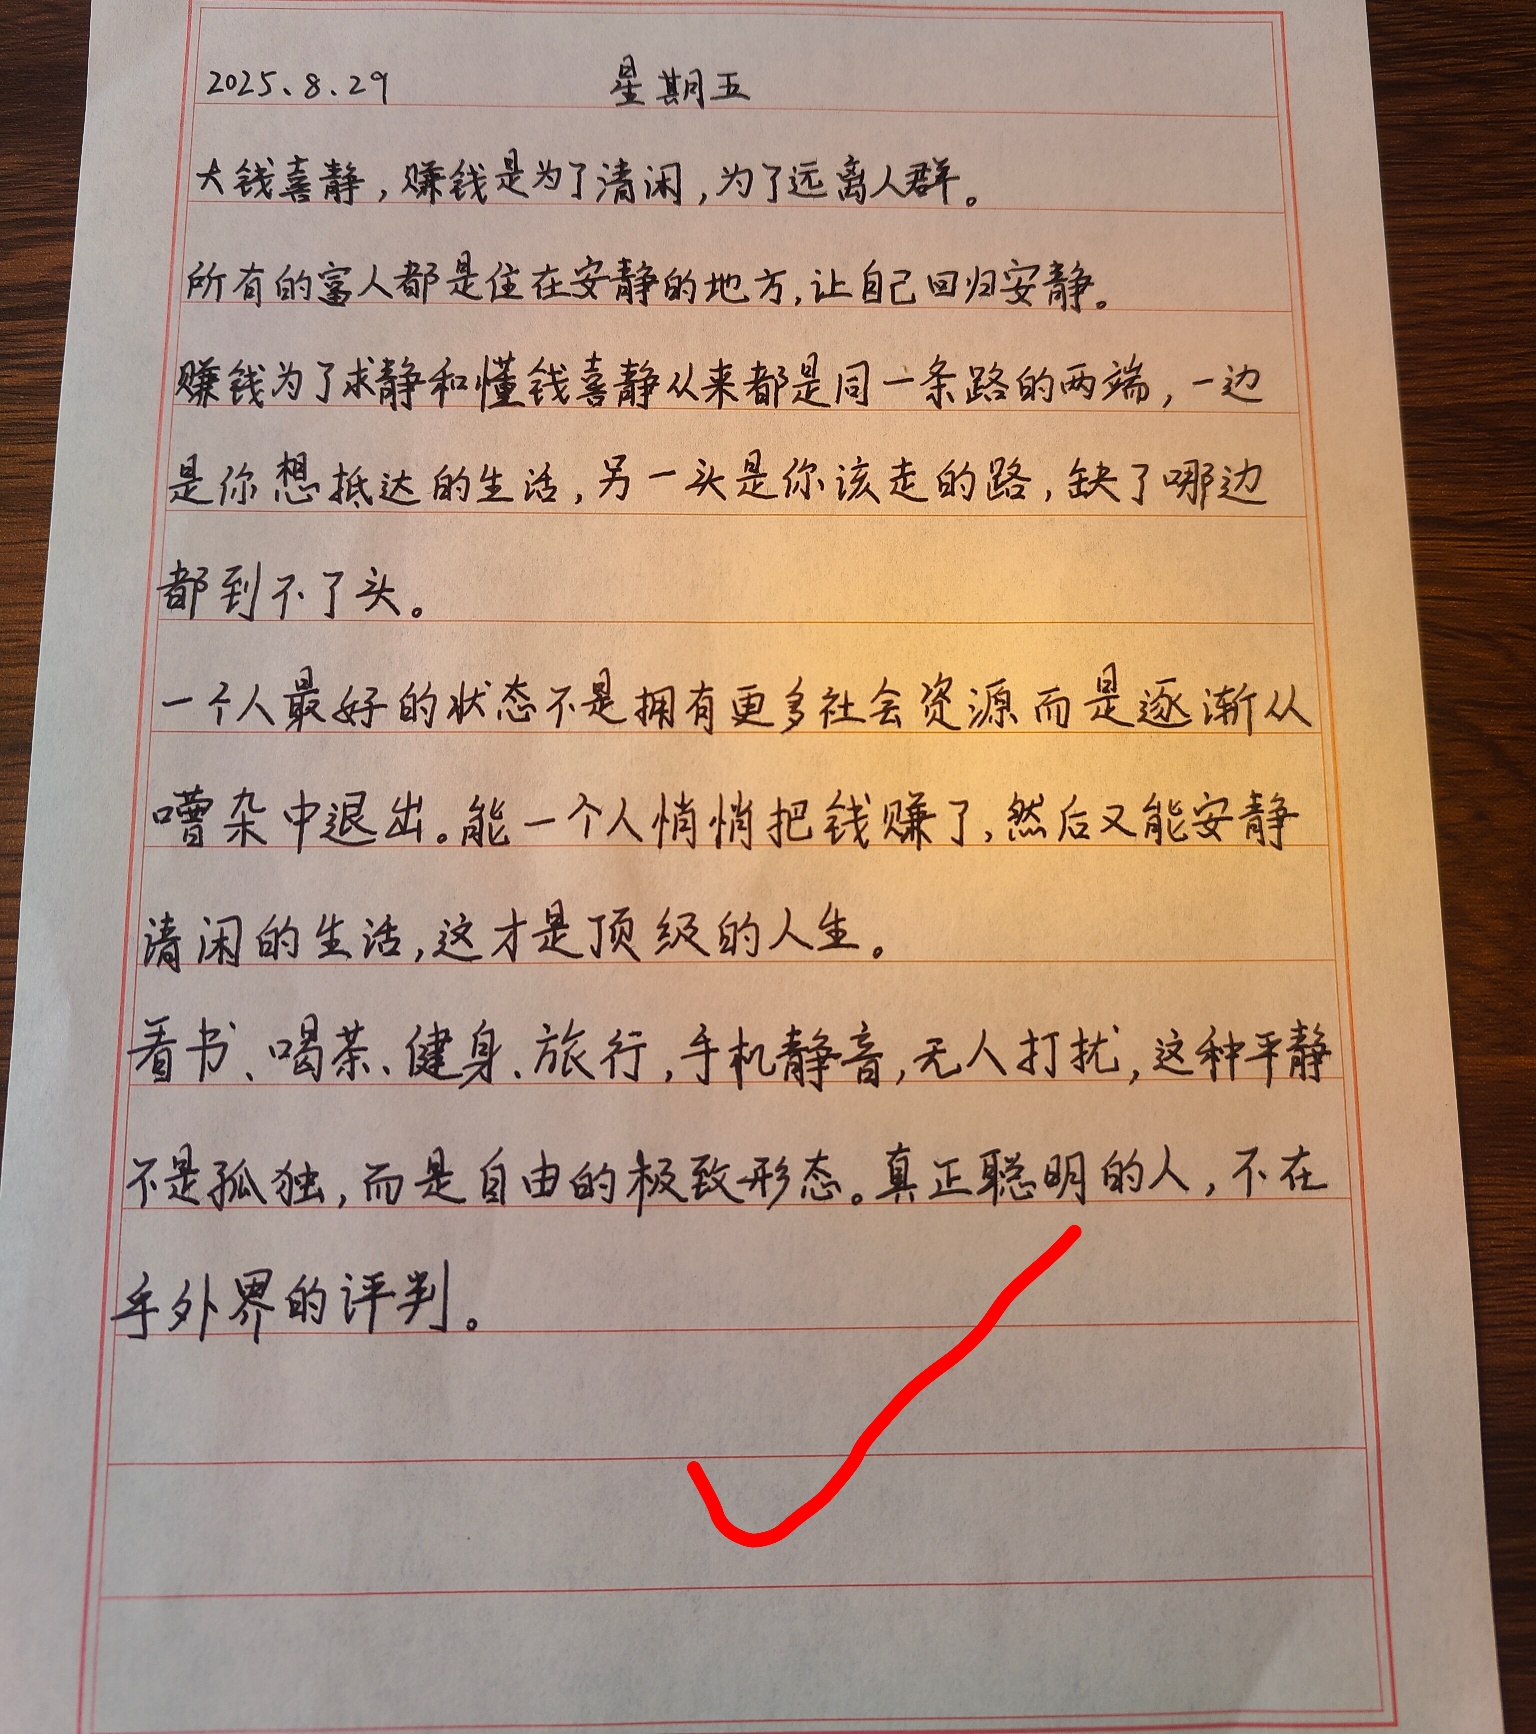 2025.8.29 星期五
大钱喜静，赚钱是为了清闲，为了远离人群。
所有的富人都是住在安静的地方，让自己回归安静。
赚钱为了求静和懂钱喜静从来都是同一条路的两端，一边
是你想抵达的生活，另一头是你该走的路，缺了哪边
都到不了头。
一个人最好的状态不是拥有更多社会资源而是逐渐从
嘈杂中退出。能一个人悄悄把钱赚了，然后又能安静
清闲的生活，这才是顶级的人生。
看书、喝茶、健身、旅行，手机静音，无人打扰，这种平静
不是孤独，而是自由的极致形态。真正聪明的人，不在
乎外界的评判。